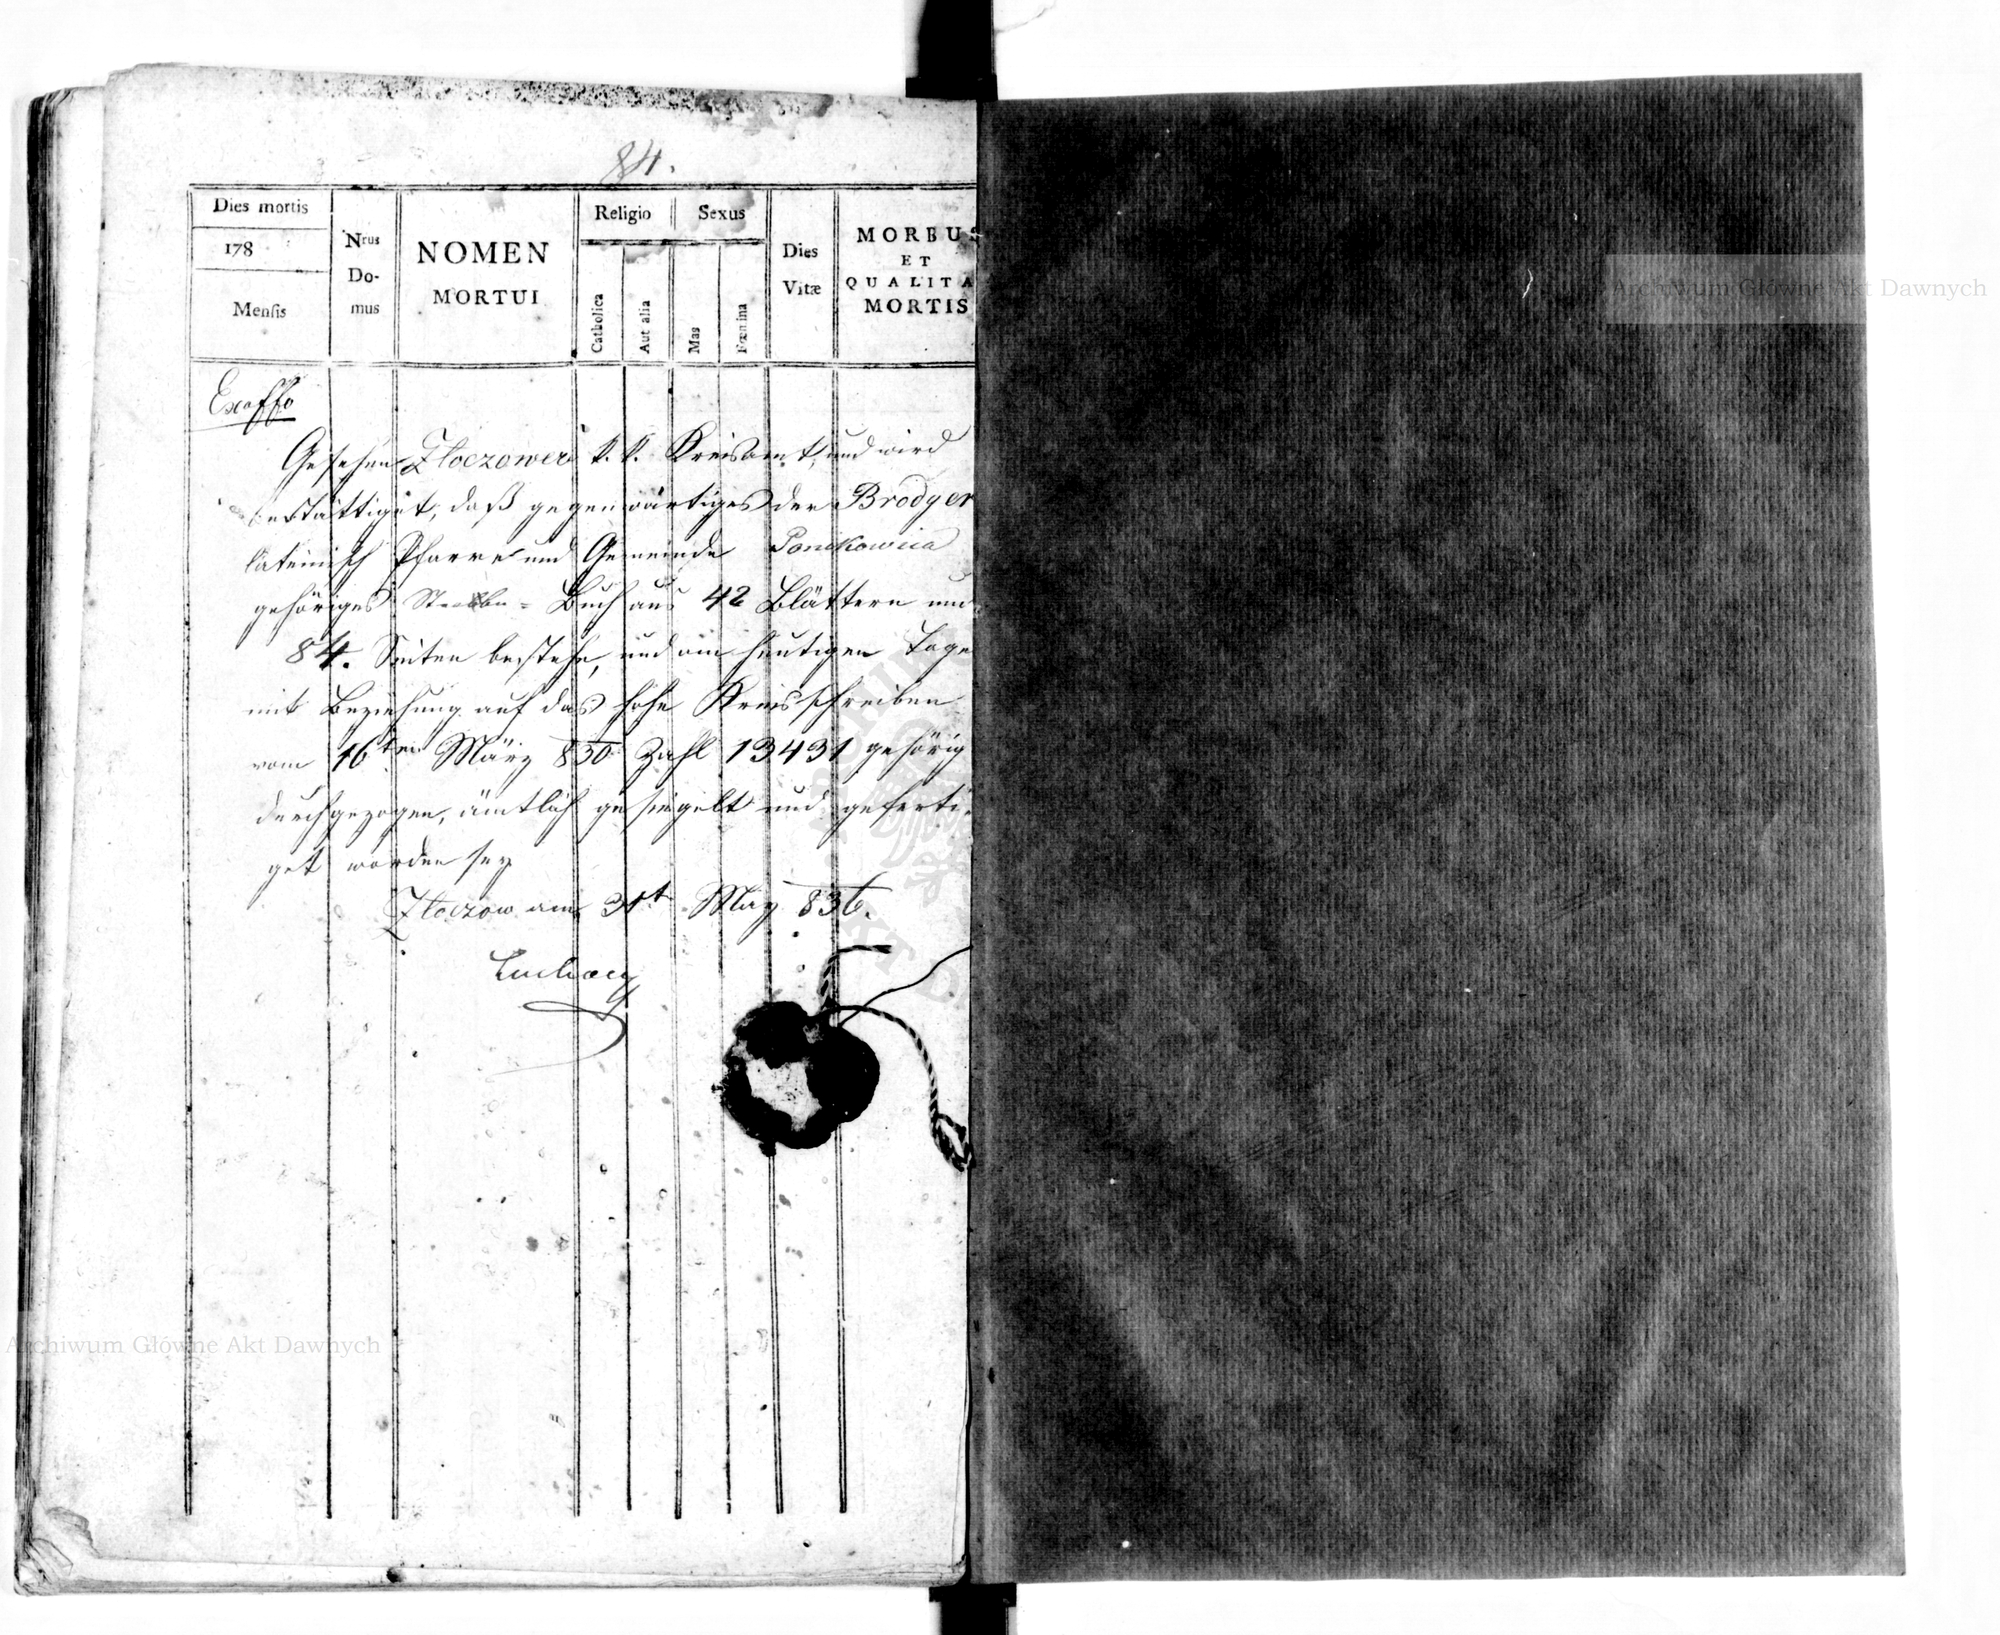 84.
Dies mortis
178
Mensis
Nrus Do-
mus
NOMEN
MORTUI
Religio
Catholica
Aut alia
Sexus
Mas
Fœmina
Dies
Vitæ
MORBUS
ET
QUALITA
MORTIS
Exoffo
Gesehen Złoczower k. k. Kreisamt, und wird
bestättiget, daß gegenwärtiges der Brodyer
lateinisch Pfarre und Gemeinde Ponikowica
gehöriges Sterbe-Buch aus 42 Blättern und
84. Seiten bestehe, und am heutigen Tage
mit Beziehung auf das hohe Kreisschreiben
vom 16ten März 830 Zahl 13431 gehörig
durchgezogen, ämtlich gesiegelt und geferti-
get worden sey
Złoczow am 31t May 836.
Archiwum Główne Akt Dawnych
Archiwum Główne Akt Dawnych